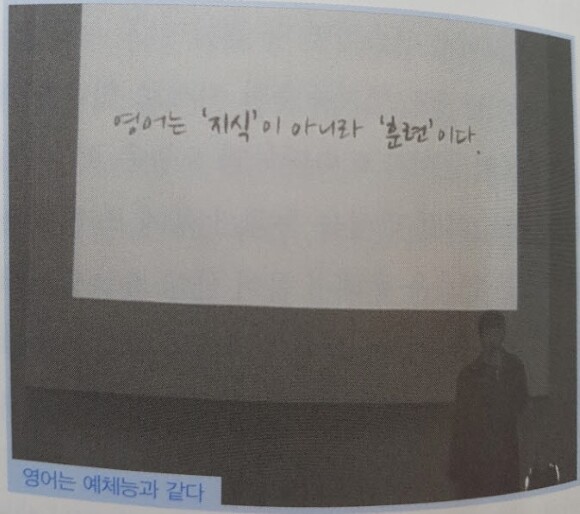 영어는 '지식'이 아니라 '훈련'이다.
영어는 예체능과 같다